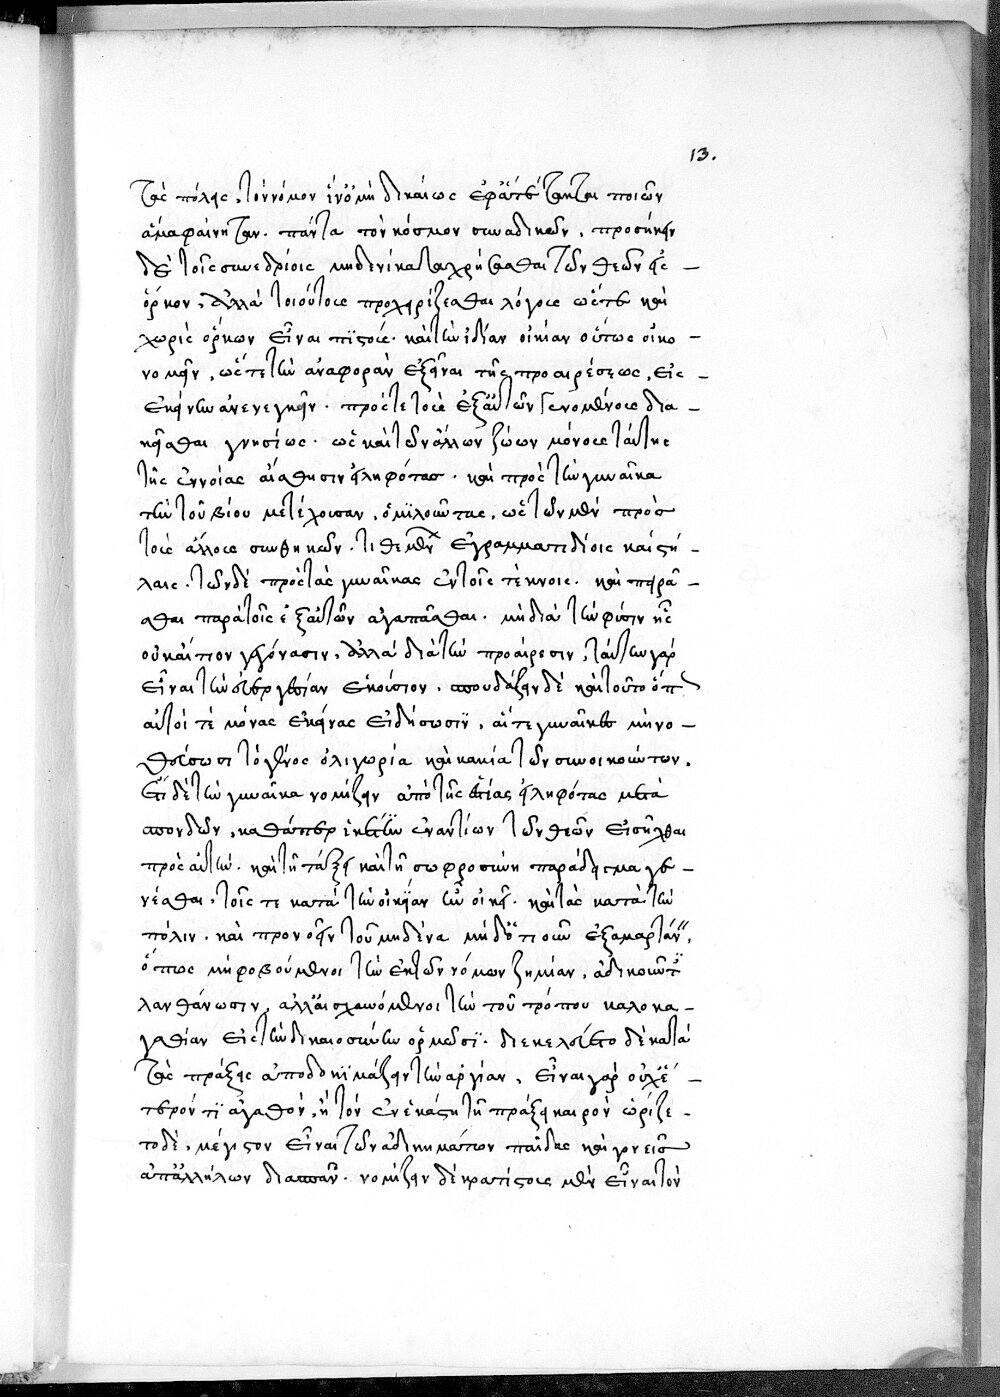 τὰς πόλεις, τὸν νόμον ἵν' ὁ μὴ δικαίως ἐφ' ἅτε τέτακται ποιῶν
ἅμα φαίνηται. πάντα τὸν κόσμον συναδικῶν, προσήκειν
δὲ τοῖς συνεδρίοις μηδενὶ καταχρήσασθαι τῶν θεῶν εἰς –
ὅρκον, ἀλλὰ τοιούτους προχειρίζεσθαι λόγους ὥστε καὶ
χωρὶς ὅρκων εἶναι πϊστούς. καὶ τὴν ἰδίαν οἰκίαν οὕτως οἰκο –
νομεῖν, ὥστε τὴν ἀναφορὰν ἐξεῖναι τῆς προαιρέσεως, εἰς –
ἐκείνην ἀνενεγκεῖν. πρός τε τοὺς ἐξ αὑτῶν γενομένους δια –
κεῖσθαι γνησίως. ὡς καὶ τῶν ἄλλων ζώων μόνους ταύτης
τῆς ἐννοίας αἴσθησιν εἰληφότας. καὶ πρὸς τὴν γυναῖκα
τὴν τοῦ βίου μετέχουσαν, ὁμϊλοῦντας, ὡς τῶν μὲν πρὸς
τοὺς ἄλλους συνθηκῶν. τιθεμένων ἐγραμματιδίοις καὶ στή –
λαις. τῶν δὲ πρὸς τὰς γυναῖκας ἐν τοῖς τέκνοις. καὶ πειρᾶ –
σθαι παρὰ τοῖς ἐξ αὑτῶν ἀγαπᾶσθαι. μὴ διὰ τὴν φύσιν ἧς
οὐκ αἴτιον γεγόνασιν, ἀλλὰ διὰ τὴν προαίρεσιν, ταύτην γὰρ
εἶναι τὴν εὐεργεσίαν ἑκούσιον. σπουδάζειν δὲ καὶ τοῦτο ὅπ
αὐτοί τε μόνας ἐκείνας εἰδήσωσιν, αἵ τε γυναῖκες μὴ νο –
θεύσωσι τὸ γένος ὀλιγωρία καὶ κακία τῶν συνοικούντων.
ἔτι δὲ τὴν γυναῖκα νομίζειν ἀπὸ τῆς ἑστίας εἰληφότας μετὰ
σπονδῶν, καθάπερ ἱκέτϊν ἐναντίων τῶν θεῶν εἰσῆχθαι
πρὸς αὐτὴν. καὶ τῆ τάξει καὶ τῆ σωφροσύνη παράδειγμα γε –
νέσθαι, τοῖς τε κατὰ τὴν οἰκΐαν ἣν οἰκεῖ. καὶ τὰς κατὰ τὴν
πόλιν. καὶ προνοεῖν τοῦ μηδένα μηδ' ὅτι οῦν ἐξαμαρτάν,
ὅπως μὴ φοβούμενοι τὴν ἐκ τῶν νόμων ζημίαν, ἀδικοῦντ
λανθάνωσιν, ἀλλ' αἰσχυνόμενοι τὴν τοῦ τρόπου καλοκα –
γαθίαν εἰς τὴν δικαιοσύνην ὁρμῶσϊ. διεκελεύετο δὲ κατὰ
τὰς πράξεις ἀποδοκϊμάζειν τὴν ἀργίαν, εἶναι γὰρ οὐχ ἕ –
τερόν τϊ ἀγαθὸν, ἢ τὸν ἐν ἑκάστη τῆ πράξει καιρὸν ὡρίζε –
το δὲ, μέγιστον εἶναι τῶν ἀδικημάτων παῖδας καὶ γονεῖς
ἀπ' ἀλλήλων διασπᾶν. νομίζειν δὲ κρατίστους μὲν εἶναι τὸν
13.